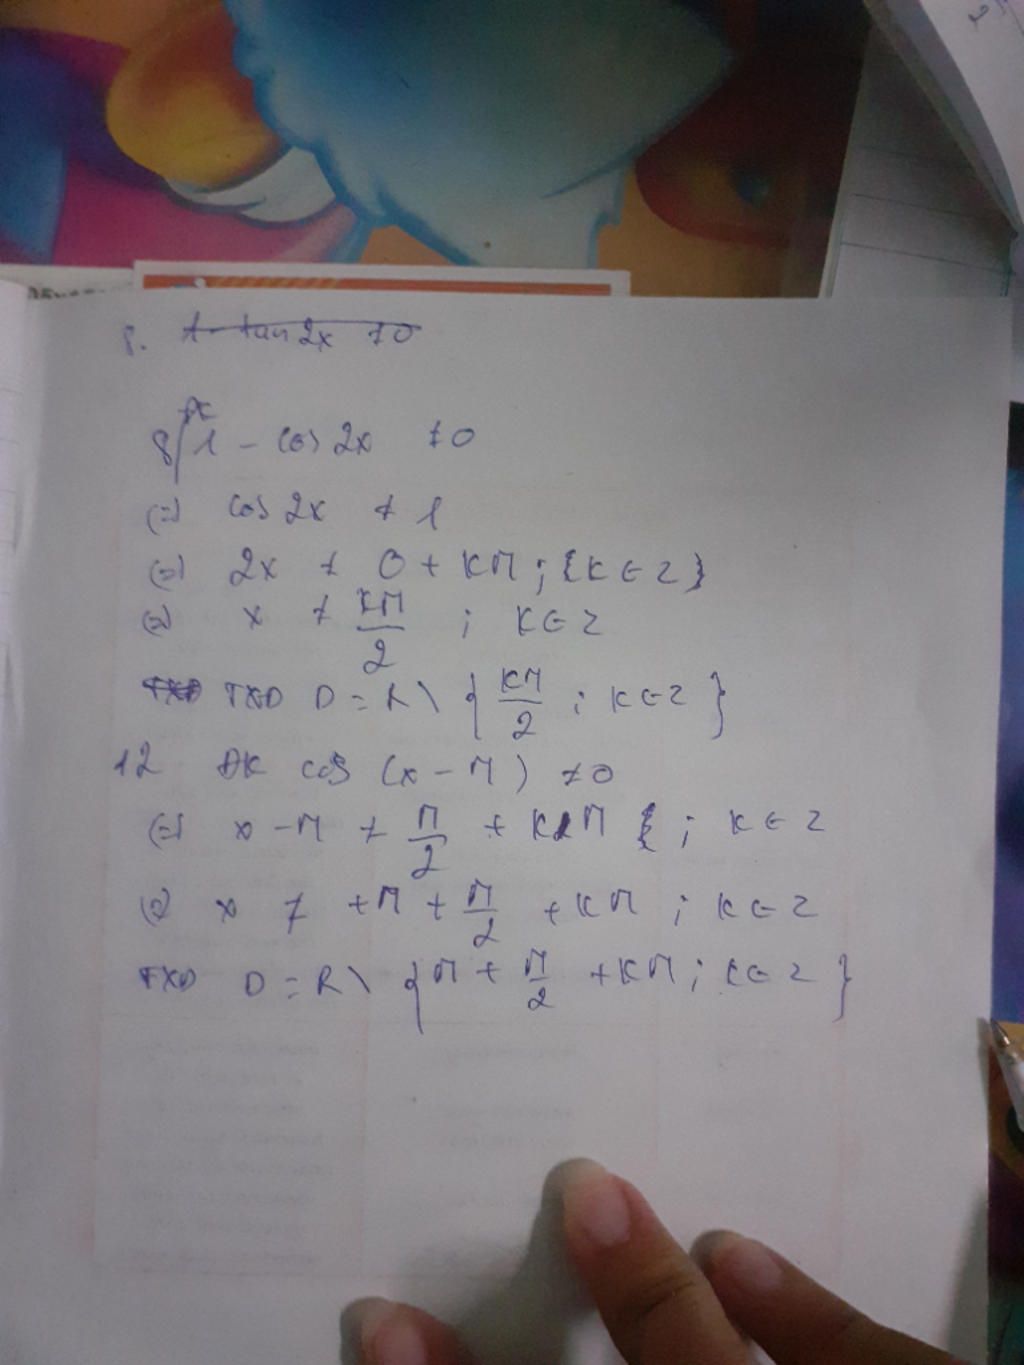 8. 1 - tan 2x ≠ 0
8/ ĐK 1 - cos 2x ≠ 0
(=) cos 2x ≠ 1
(=) 2x ≠ 0 + kπ ; {k ∈ Z}
(=) x ≠ kπ/2 ; k ∈ Z
TXĐ D = R \ { kπ/2 ; k ∈ Z }
12 ĐK cos (x - π) ≠ 0
(=) x - π ≠ π/2 + kπ ; k ∈ Z
(=) x ≠ +π + π/2 + kπ ; k ∈ Z
TXĐ D = R \ { π + π/2 + kπ ; k ∈ Z }